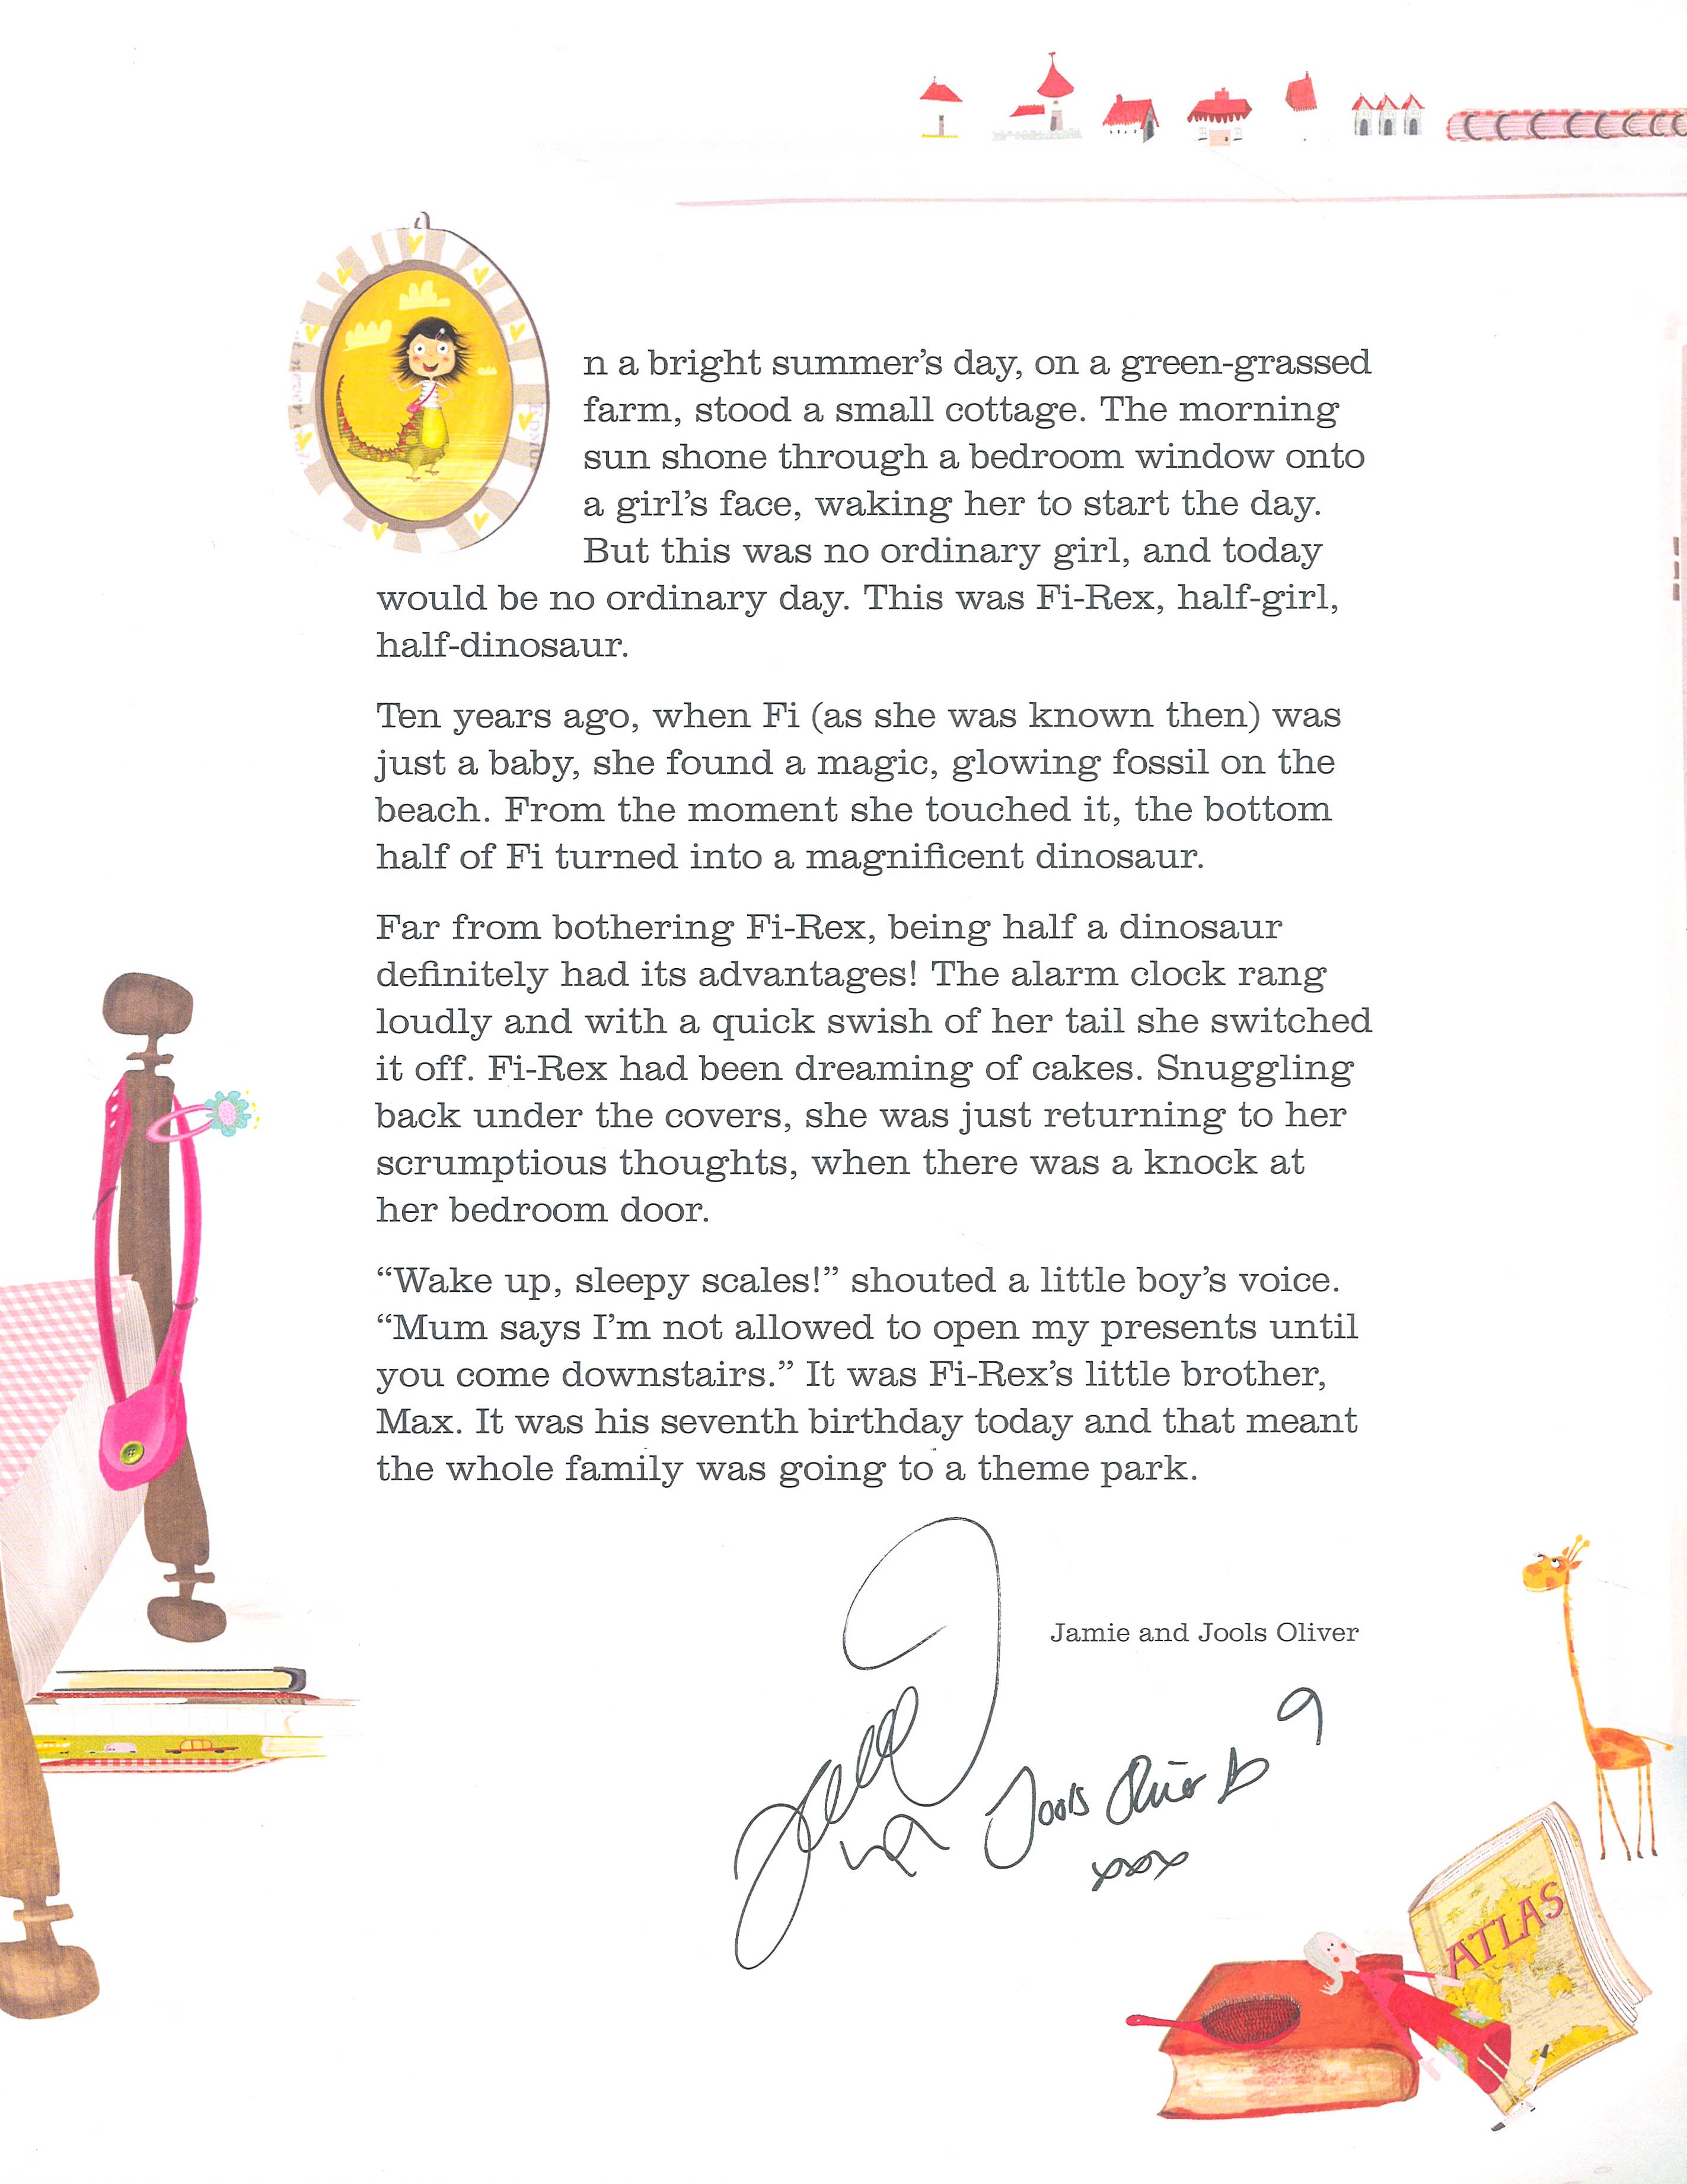 n a bright summer's day, on a green-grassed
farm, stood a small cottage. The morning
sun shone through a bedroom window onto
a girl's face, waking her to start the day.
But this was no ordinary girl, and today
would be no ordinary day. This was Fi-Rex, half-girl,
half-dinosaur.
Ten years ago, when Fi (as she was known then) was
just a baby, she found a magic, glowing fossil on the
beach. From the moment she touched it, the bottom
half of Fi turned into a magnificent dinosaur.
Far from bothering Fi-Rex, being half a dinosaur
definitely had its advantages! The alarm clock rang
loudly and with a quick swish of her tail she switched
it off. Fi-Rex had been dreaming of cakes. Snuggling
back under the covers, she was just returning to her
scrumptious thoughts, when there was a knock at
her bedroom door.
“Wake up, sleepy scales!” shouted a little boy's voice.
“Mum says I'm not allowed to open my presents until
you come downstairs.” It was Fi-Rex's little brother,
Max. It was his seventh birthday today and that meant
the whole family was going to a theme park.
Jamie and Jools Oliver
Jools Oliver
xxxx
ATLAS